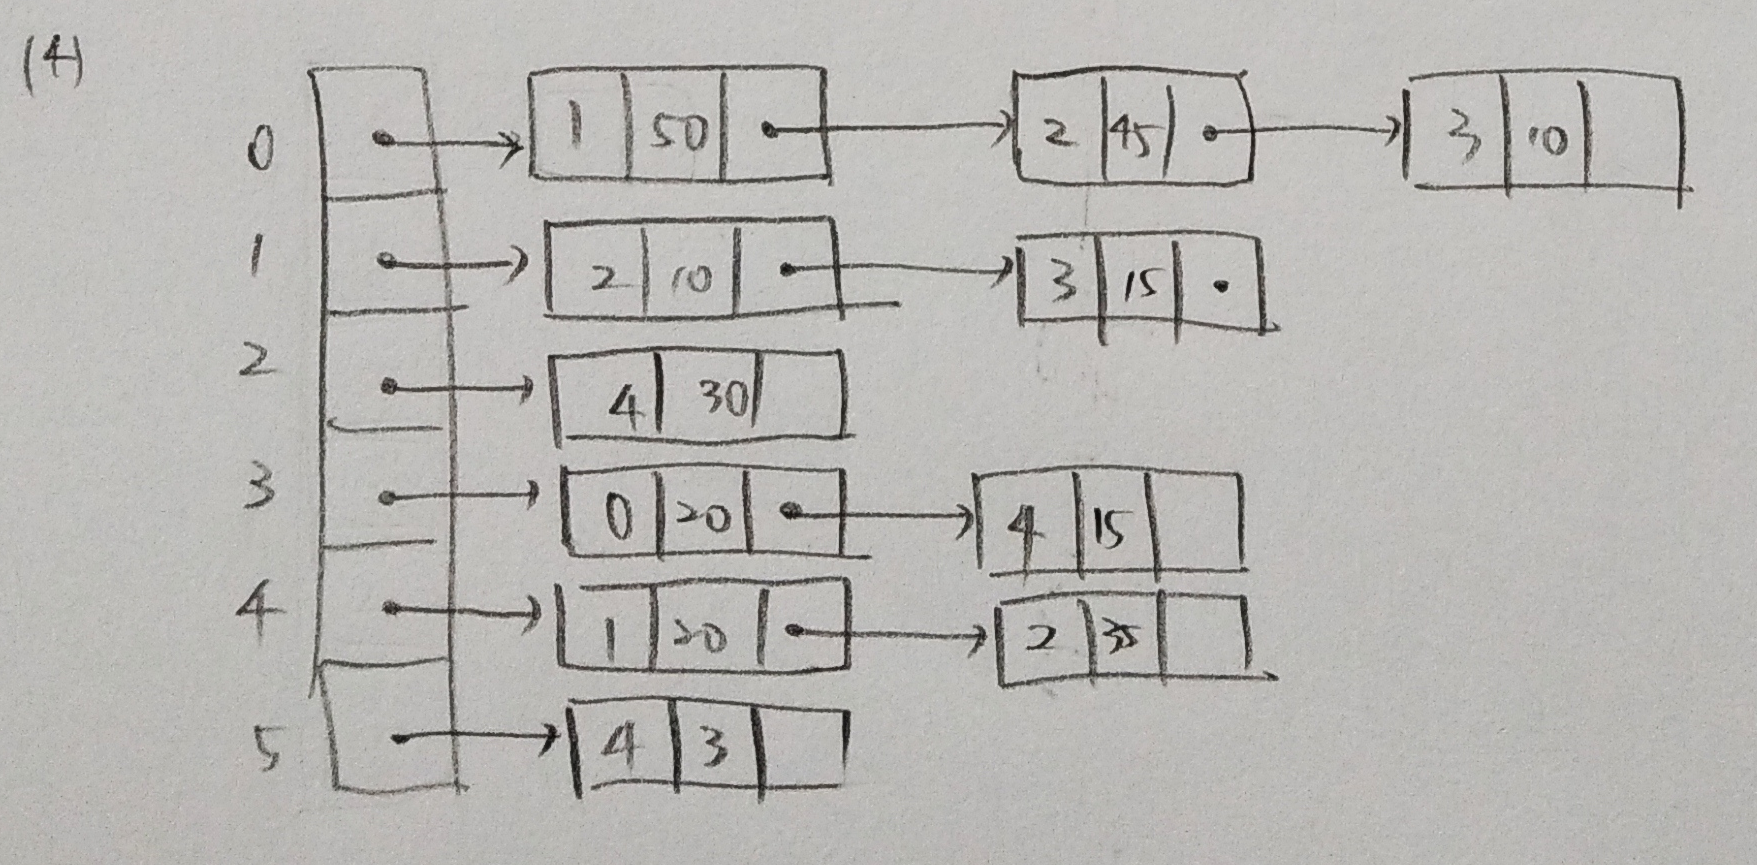 (4)
0 1 50 2 45 3 10
1 2 10 3 15
2 4 30
3 0 20 4 15
4 1 20 2 35
5 4 3